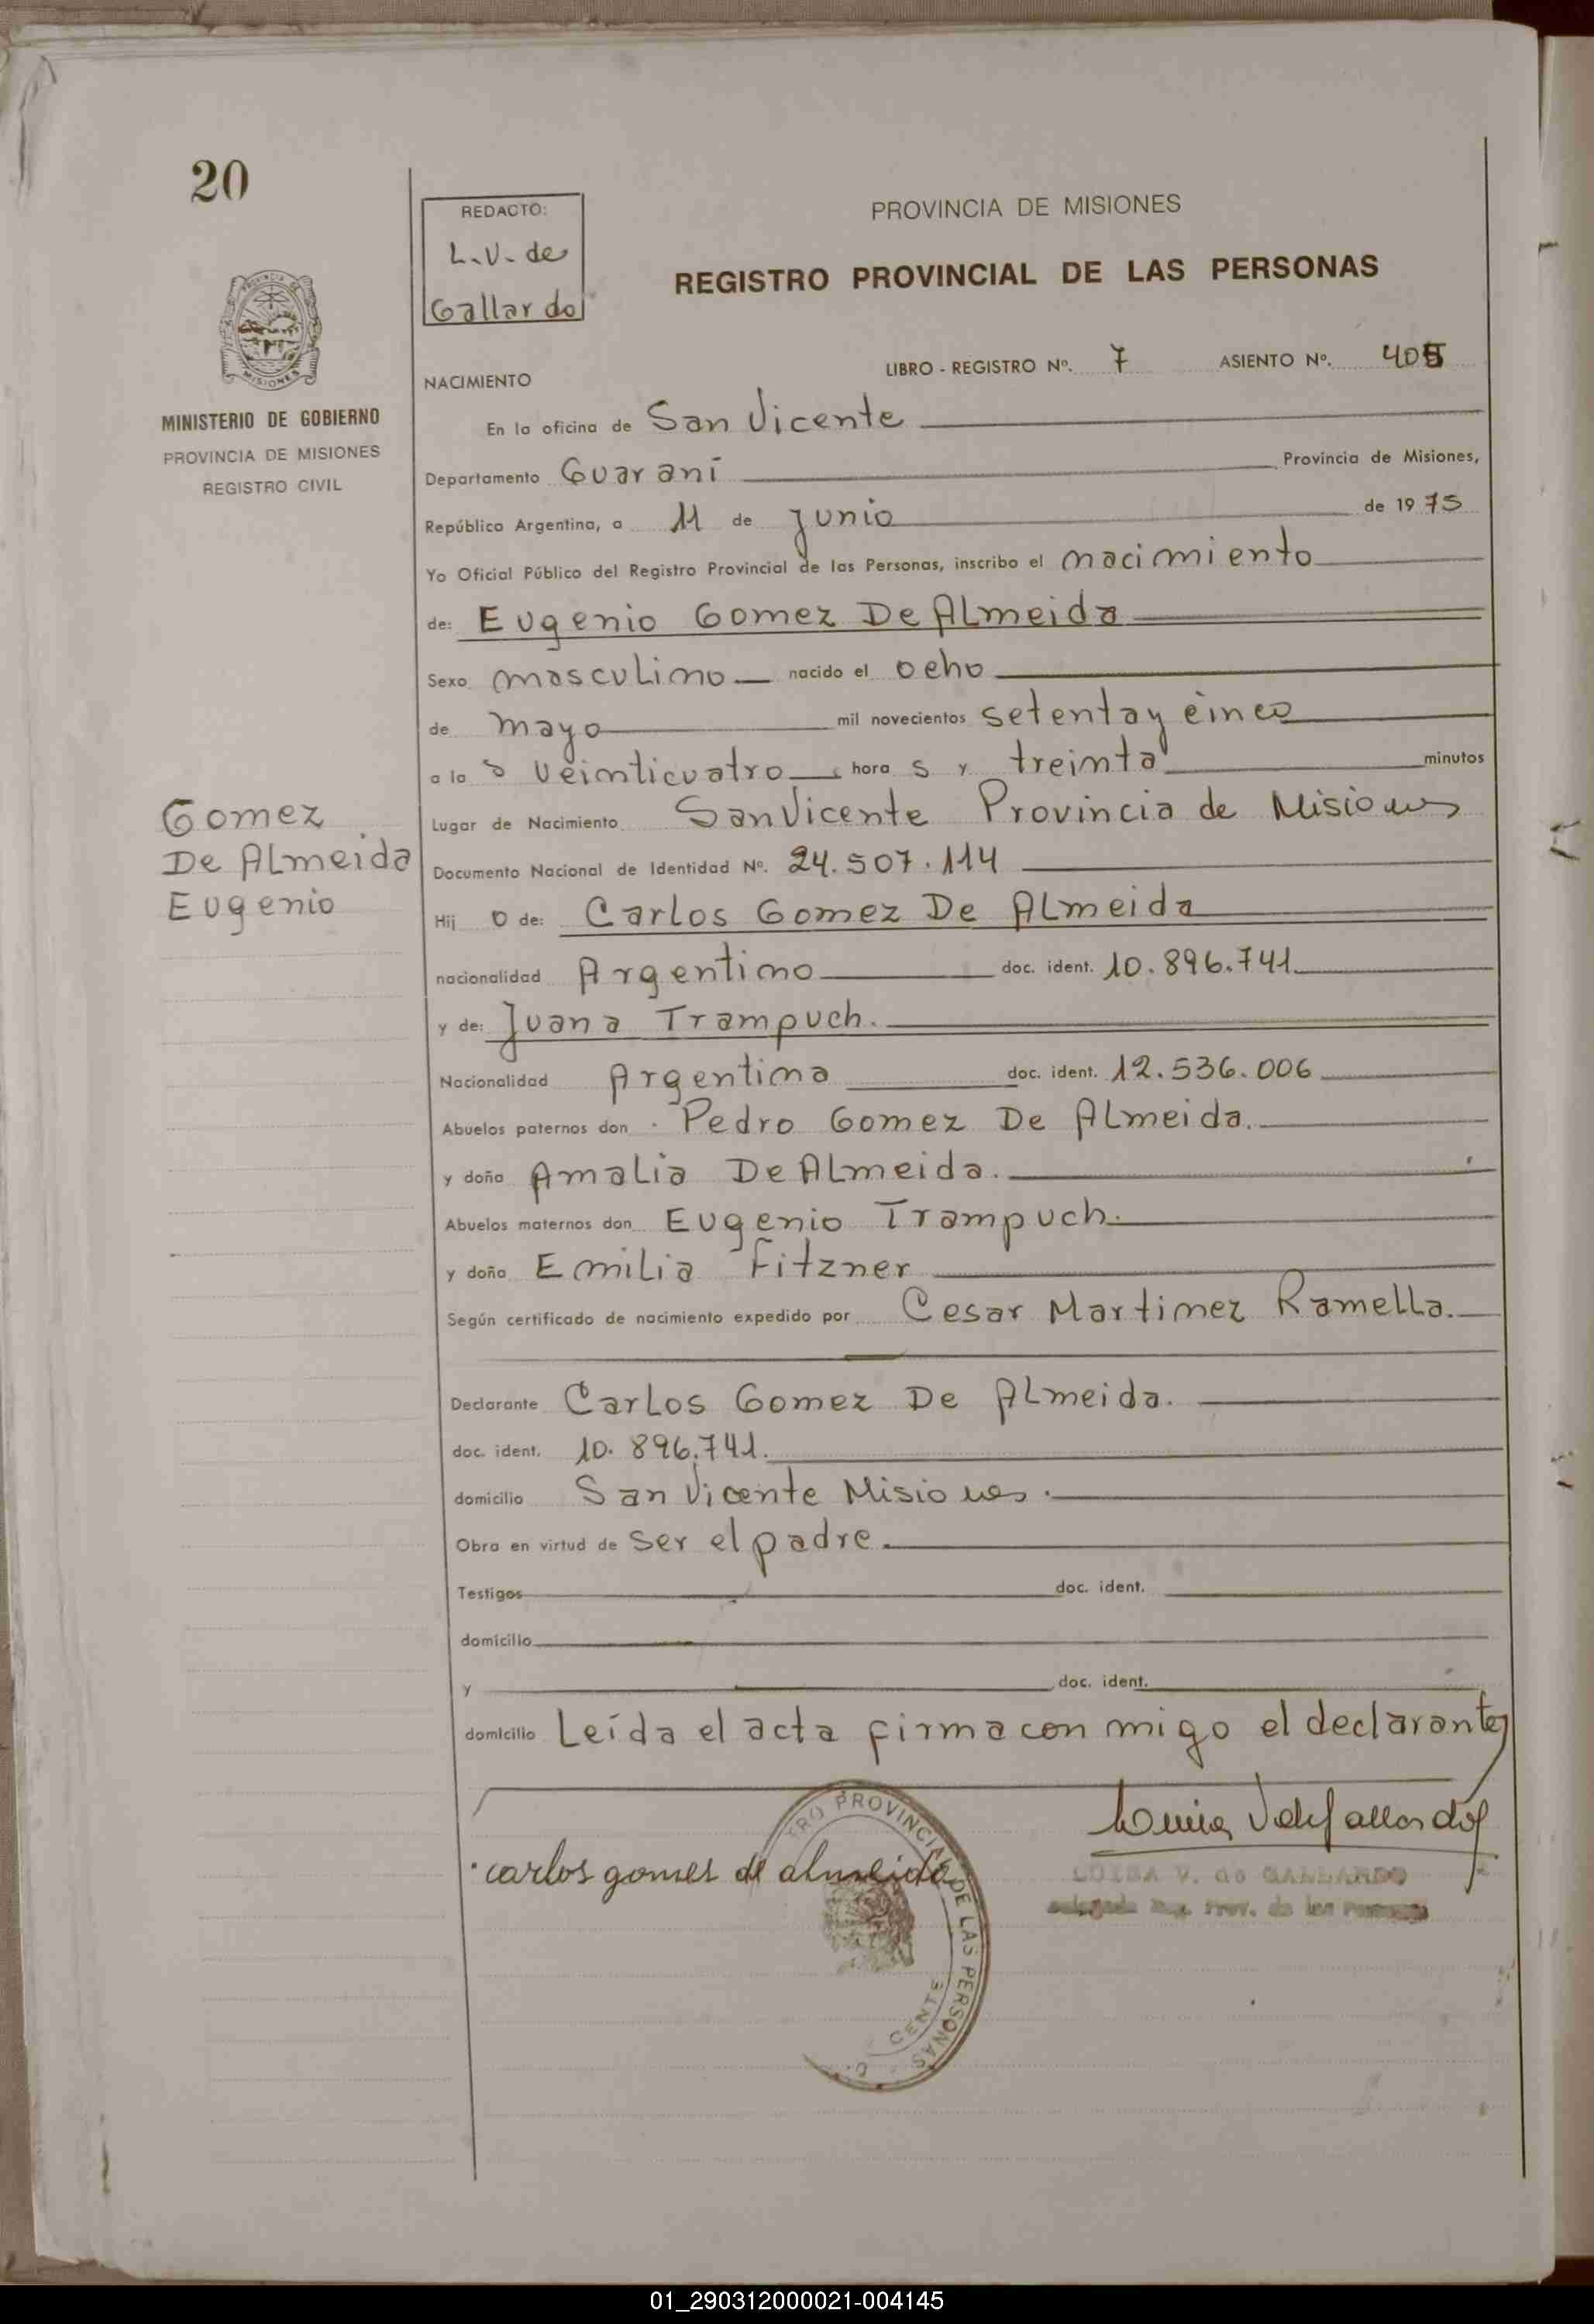 20
REDACTO:
L.V. de
Gallardo
PROVINCIA DE MISIONES
REGISTRO PROVINCIAL DE LAS PERSONAS
MISIONES
MINISTERIO DE GOBIERNO
PROVINCIA DE MISIONES
REGISTRO CIVIL
NACIMIENTO
LIBRO - REGISTRO Nº. 7 ASIENTO Nº. 405
En la oficina de San Vicente
Departamento Guaraní Provincia de Misiones,
República Argentina, a 11 de junio de 1975
Yo Oficial Público del Registro Provincial de las Personas, inscribo el nacimiento
de: Eugenio Gomez De Almeida
Sexo masculino nacido el ocho
de mayo mil novecientos setenta y cinco
a la s veinticuatro hora s y treinta minutos
Lugar de Nacimiento San Vicente Provincia de Misiones
Gomez
De Almeida
Eugenio
Documento Nacional de Identidad Nº. 24.507.114
Hij o de: Carlos Gomez De Almeida
nacionalidad Argentino doc. ident. 10.896.741
y de: Juana Trampuch.
Nacionalidad Argentina doc. ident. 12.536.006
Abuelos paternos don Pedro Gomez De Almeida.
y doña Amalia De Almeida.
Abuelos maternos don Eugenio Trampuch.
y doña Emilia Fitzner
Según certificado de nacimiento expedido por Cesar Martinez Ramella.
Declarante Carlos Gomez De Almeida.
doc. ident. 10.896.741.
domicilio San Vicente Misiones.
Obra en virtud de ser el padre.
Testigos doc. ident.
domicilio
y doc. ident.
domicilio Leída el acta firma con migo el declarante
carlos gomes de almeida
LUISA V. de GALLARDO
Prov. de las Personas
PROVINCIAL DE LAS PERSONAS
CENTE
01_290312000021-004145